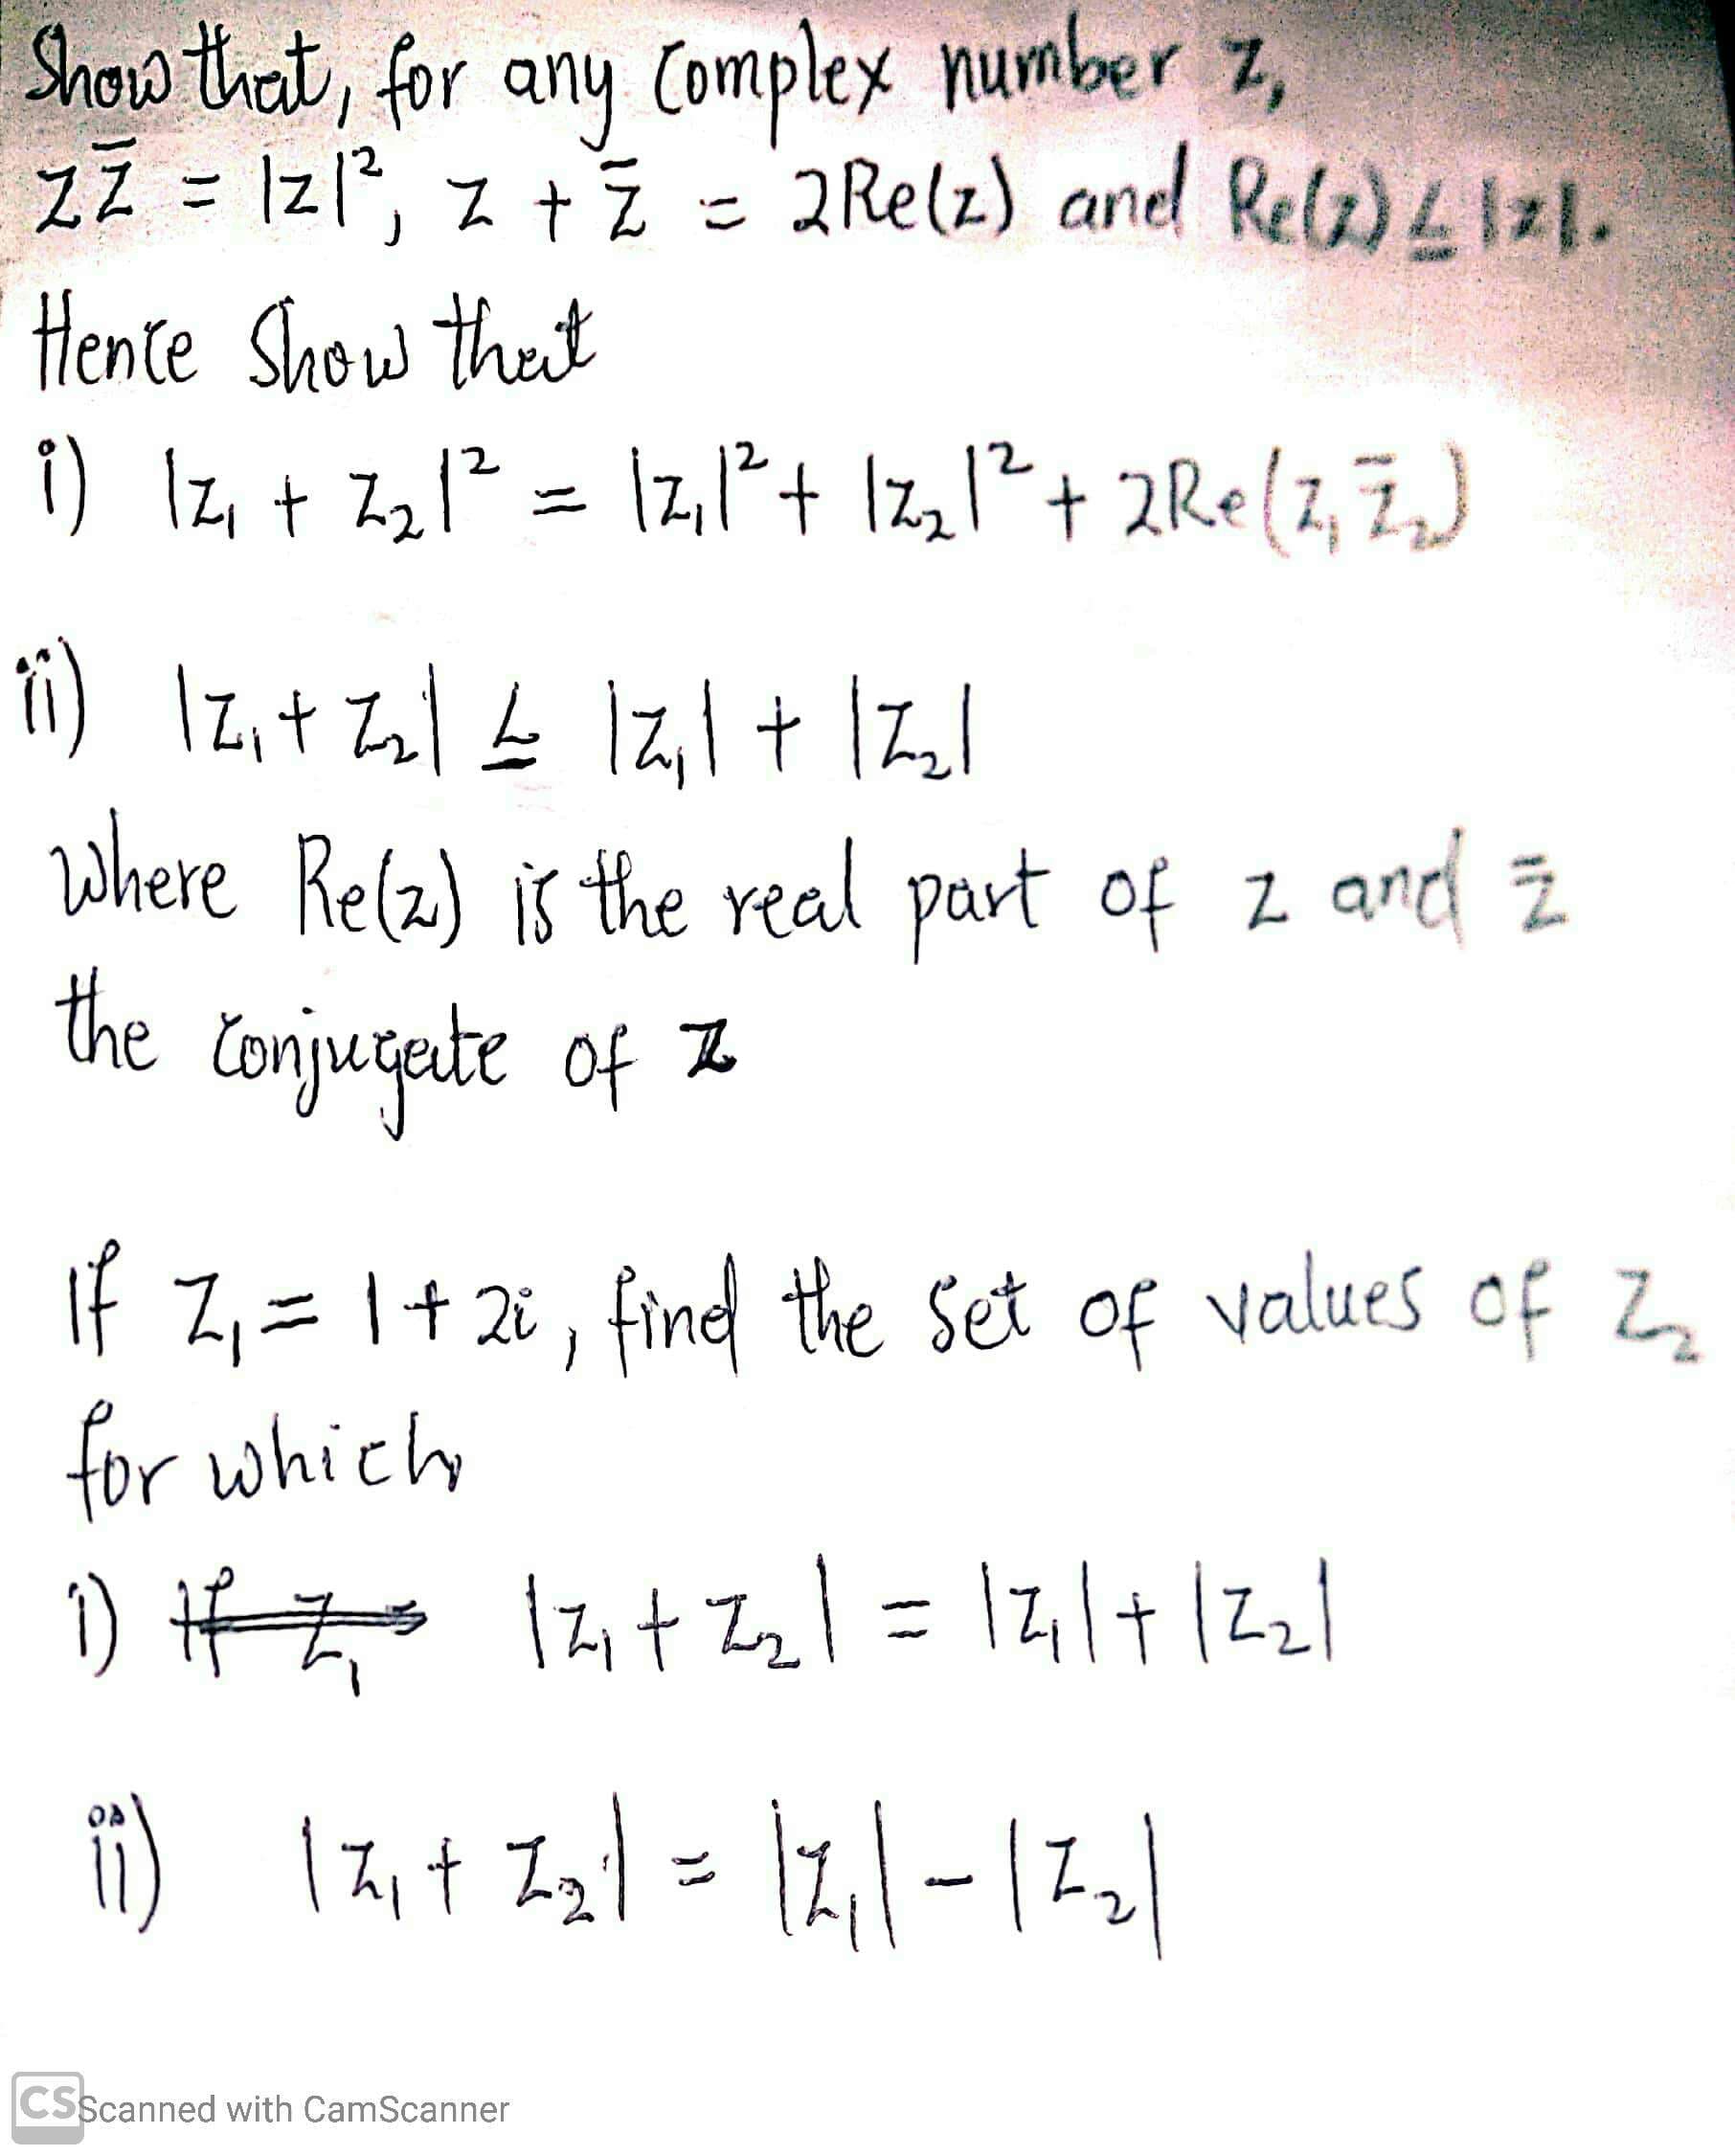 Show that, for any complex number z,
zz̄ = |z|², z + z̄ = 2Re(z) and Re(z) ≤ |z|.
Hence show that
i) |z₁ + z₂|² = |z₁|² + |z₂|² + 2Re(z₁z̄₂)
ii) |z₁ + z₂| ≤ |z₁| + |z₂|
where Re(z) is the real part of z and z̄
the conjugate of z
If z₁ = 1 + 2i, find the set of values of z₂
for which
i) If z₁ = |z₁ + z₂| = |z₁| + |z₂|
ii) |z₁ + z₂| = |z₁| - |z₂|
CS Scanned with CamScanner